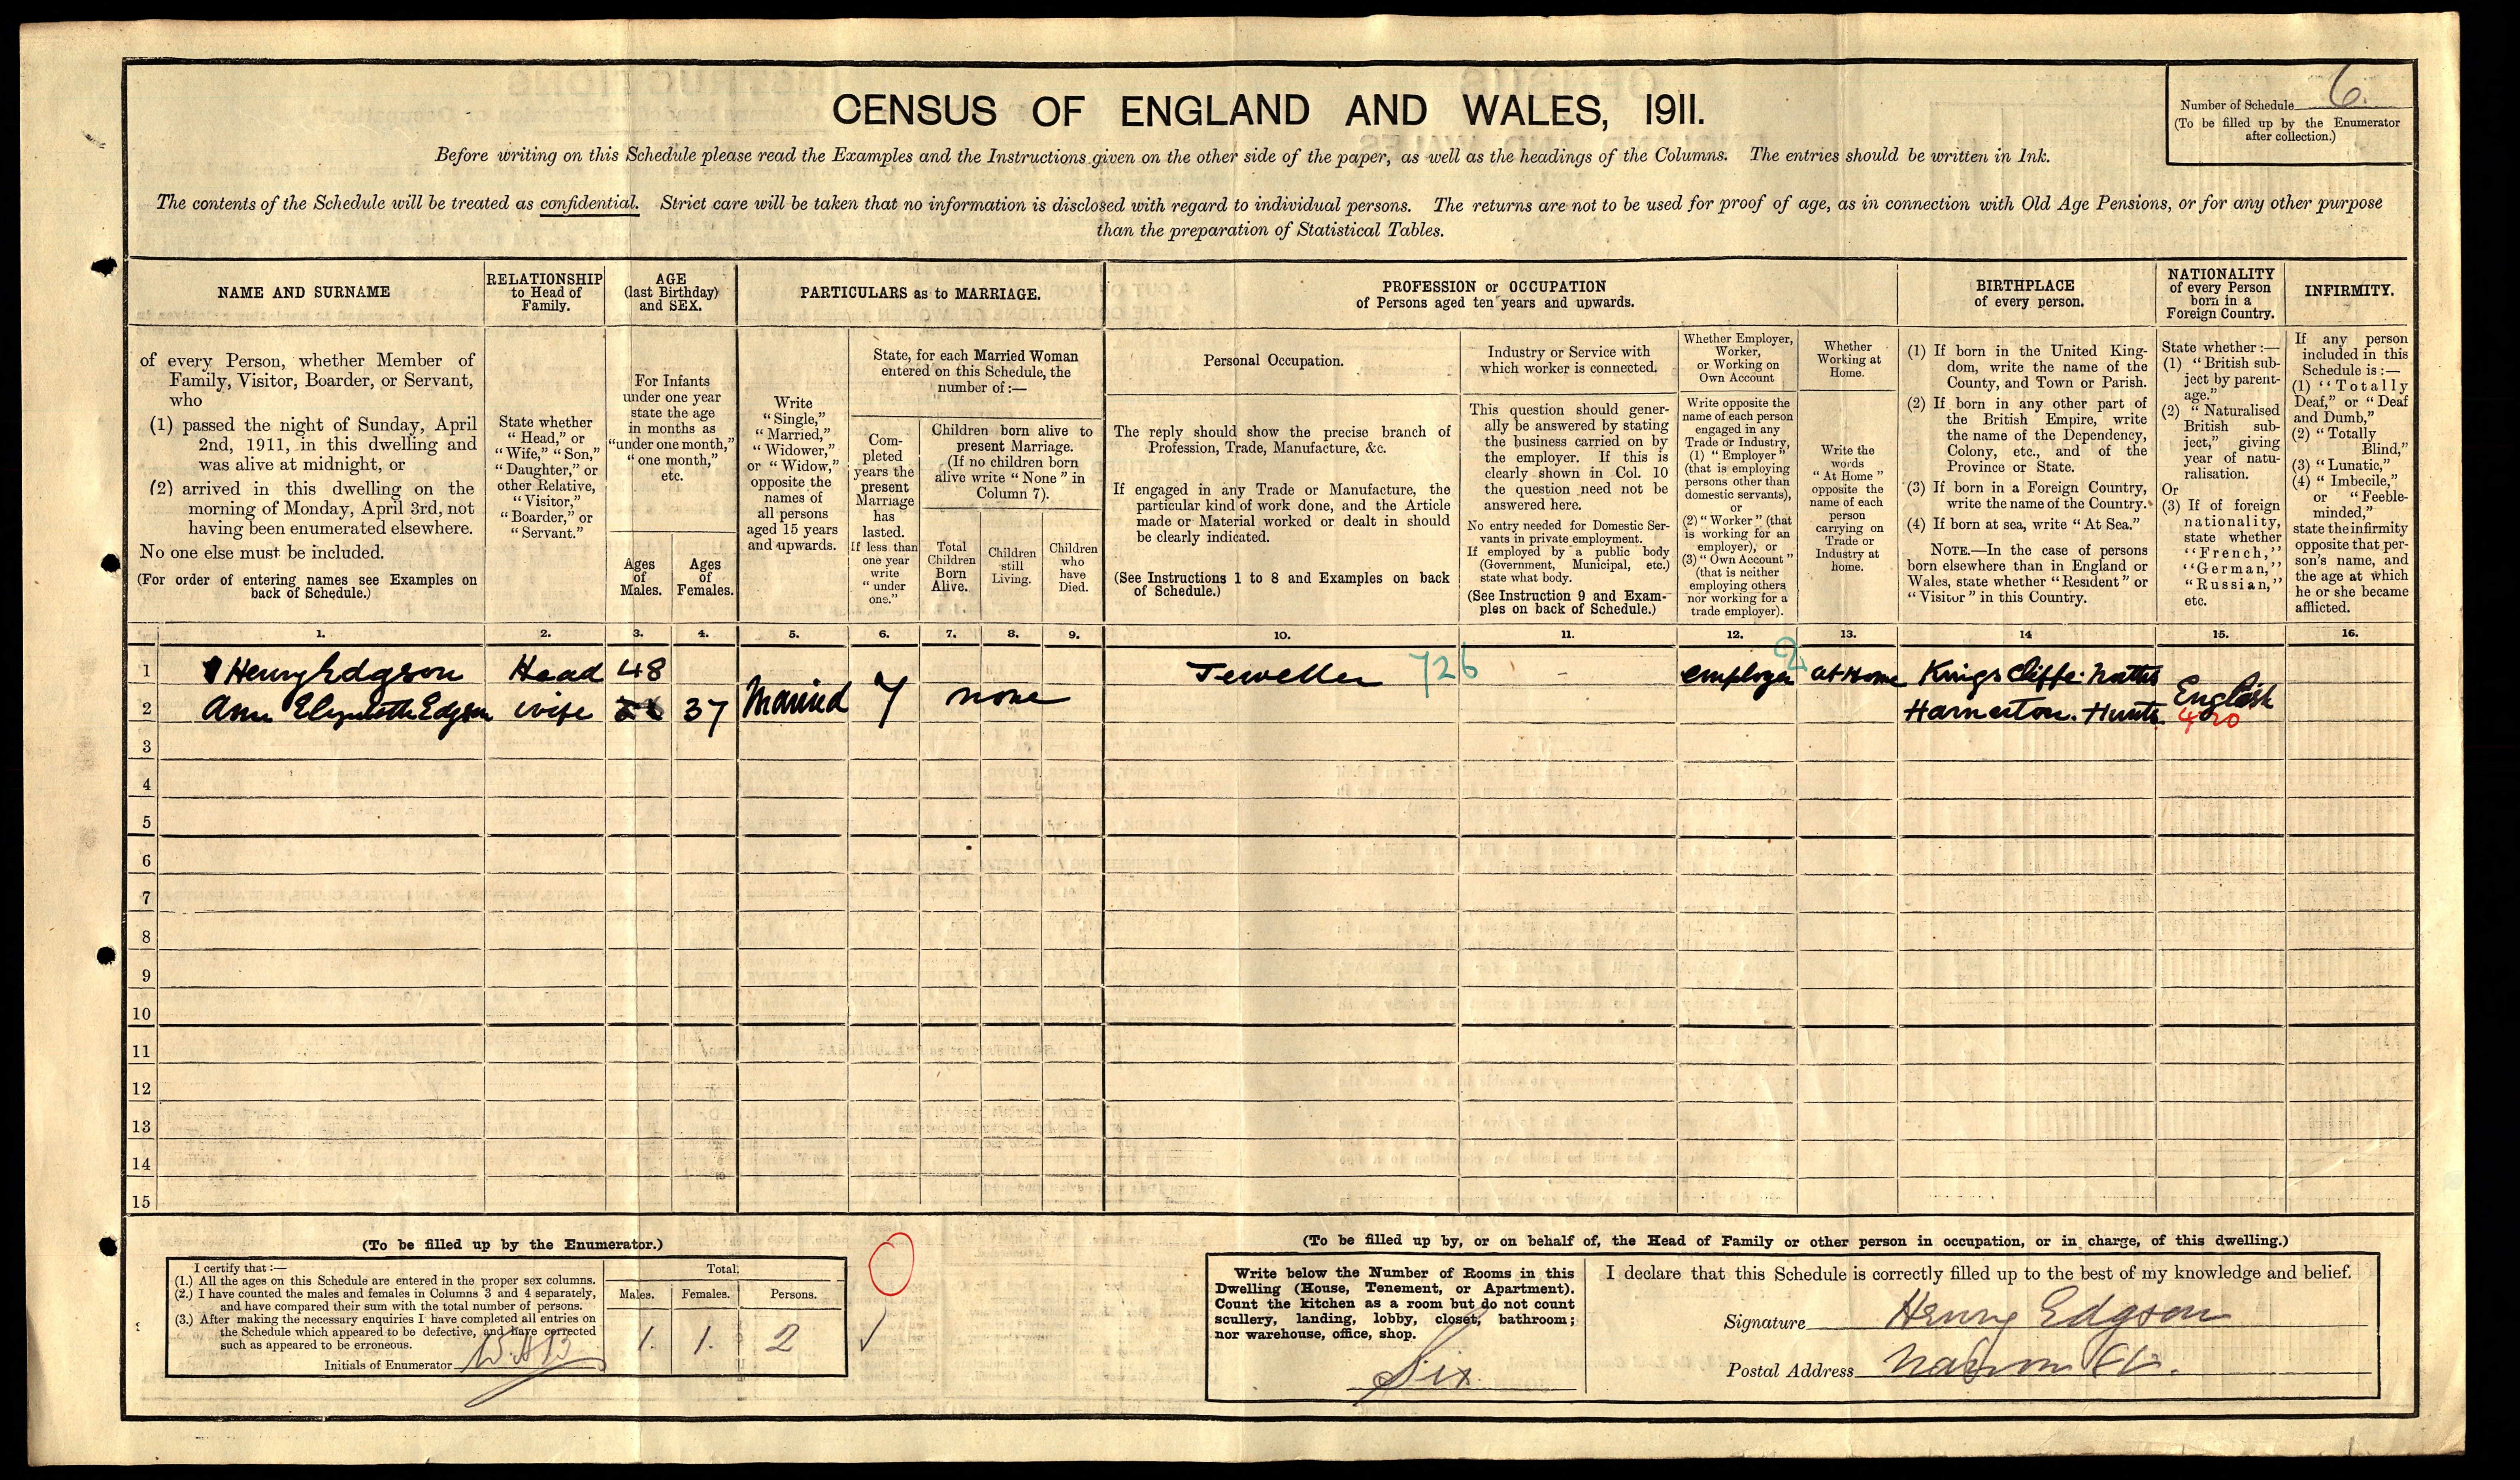 CENSUS OF ENGLAND AND WALES, 1911.
Number of Schedule 6.
(To be filled up by the Enumerator
after collection.)
Before writing on this Schedule please read the Examples and the Instructions given on the other side of the paper, as well as the headings of the Columns. The entries should be written in Ink.
The contents of the Schedule will be treated as confidential. Strict care will be taken that no information is disclosed with regard to individual persons. The returns are not to be used for proof of age, as in connection with Old Age Pensions, or for any other purpose
than the preparation of Statistical Tables.
NAME AND SURNAME
of every Person, whether Member of
Family, Visitor, Boarder, or Servant,
who
(1) passed the night of Sunday, April
2nd, 1911, in this dwelling and
was alive at midnight, or
(2) arrived in this dwelling on the
morning of Monday, April 3rd, not
having been enumerated elsewhere.
No one else must be included.
(For order of entering names see Examples on
back of Schedule.)
RELATIONSHIP
to Head of
Family.
State whether
"Head," or
"Wife," "Son,"
"Daughter," or
other Relative,
"Visitor,"
"Boarder," or
"Servant."
AGE
(last Birthday)
and SEX.
For Infants
under one year
state the age
in months as
"under one month,"
"one month,"
etc.
Ages
of
Males.
Ages
of
Females.
PARTICULARS as to MARRIAGE.
Write
"Single,"
"Married,"
"Widower,"
or "Widow,"
opposite the
names of
all persons
aged 15 years
and upwards.
State, for each Married Woman
entered on this Schedule, the
number of:—
Com-
pleted
years the
present
Marriage
has
lasted.
If less than
one year
write
"under
one."
Children born alive to
present Marriage.
(If no children born
alive write "None" in
Column 7).
Total
Children
Born
Alive.
Children
still
Living.
Children
who
have
Died.
PROFESSION or OCCUPATION
of Persons aged ten years and upwards.
Personal Occupation.
The reply should show the precise branch of
Profession, Trade, Manufacture, &c.
If engaged in any Trade or Manufacture, the
particular kind of work done, and the Article
made or Material worked or dealt in should
be clearly indicated.
(See Instructions 1 to 8 and Examples on back
of Schedule.)
Industry or Service with
which worker is connected.
This question should gener-
ally be answered by stating
the business carried on by
the employer. If this is
clearly shown in Col. 10
the question need not be
answered here.
No entry needed for Domestic Ser-
vants in private employment.
If employed by a public body
(Government, Municipal, etc.)
state what body.
(See Instruction 9 and Exam-
ples on back of Schedule.)
Whether Employer,
Worker,
or Working on
Own Account
Write opposite the
name of each person
engaged in any
Trade or Industry,
(1) "Employer"
(that is employing
persons other than
domestic servants),
or
(2) "Worker" (that
is working for an
employer), or
(3) "Own Account"
(that is neither
employing others
nor working for a
trade employer).
Whether
Working at
Home.
Write the
words
"At Home"
opposite the
name of each
person
carrying on
Trade or
Industry at
home.
BIRTHPLACE
of every person.
(1) If born in the United King-
dom, write the name of the
County, and Town or Parish.
(2) If born in any other part of
the British Empire, write
the name of the Dependency,
Colony, etc., and of the
Province or State.
(3) If born in a Foreign Country,
write the name of the Country.
(4) If born at sea, write "At Sea."
NOTE.—In the case of persons
born elsewhere than in England or
Wales, state whether "Resident" or
"Visitor" in this Country.
NATIONALITY
of every Person
born in a
Foreign Country.
State whether:—
(1) "British sub-
ject by parent-
age."
(2) "Naturalised
British sub-
ject," giving
year of natu-
ralisation.
Or
(3) If of foreign
nationality,
state whether
"French,"
"German,"
"Russian,"
etc.
INFIRMITY.
If any person
included in this
Schedule is:—
(1) "Totally
Deaf," or "Deaf
and Dumb,"
(2) "Totally
Blind,"
(3) "Lunatic,"
(4) "Imbecile,"
or "Feeble-
minded,"
state the infirmity
opposite that per-
son's name, and
the age at which
he or she became
afflicted.
1. 2. 3. 4. 5. 6. 7. 8. 9. 10. 11. 12. 13. 14 15. 16.
1 Henry Edgson Head 48 Jeweller 726 - employer 2 at Home Kings Cliffe
2 Ann Elizabeth Edgson wife 37 Married 7 none Hunts English 420
3
4
5
6
7
8
9
10
11
12
13
14
15
(To be filled up by the Enumerator.)
I certify that:—
(1.) All the ages on this Schedule are entered in the proper sex columns.
(2.) I have counted the males and females in Columns 3 and 4 separately,
and have compared their sum with the total number of persons.
(3.) After making the necessary enquiries I have completed all entries on
the Schedule which appeared to be defective, and have corrected
such as appeared to be erroneous.
Initials of Enumerator
Total.
Males. Females. Persons.
1. 1. 2
(To be filled up by, or on behalf of, the Head of Family or other person in occupation, or in charge, of this dwelling.)
Write below the Number of Rooms in this
Dwelling (House, Tenement, or Apartment).
Count the kitchen as a room but do not count
scullery, landing, lobby, closet, bathroom;
nor warehouse, office, shop.
Six
I declare that this Schedule is correctly filled up to the best of my knowledge and belief.
Signature Henry Edgson
Postal Address